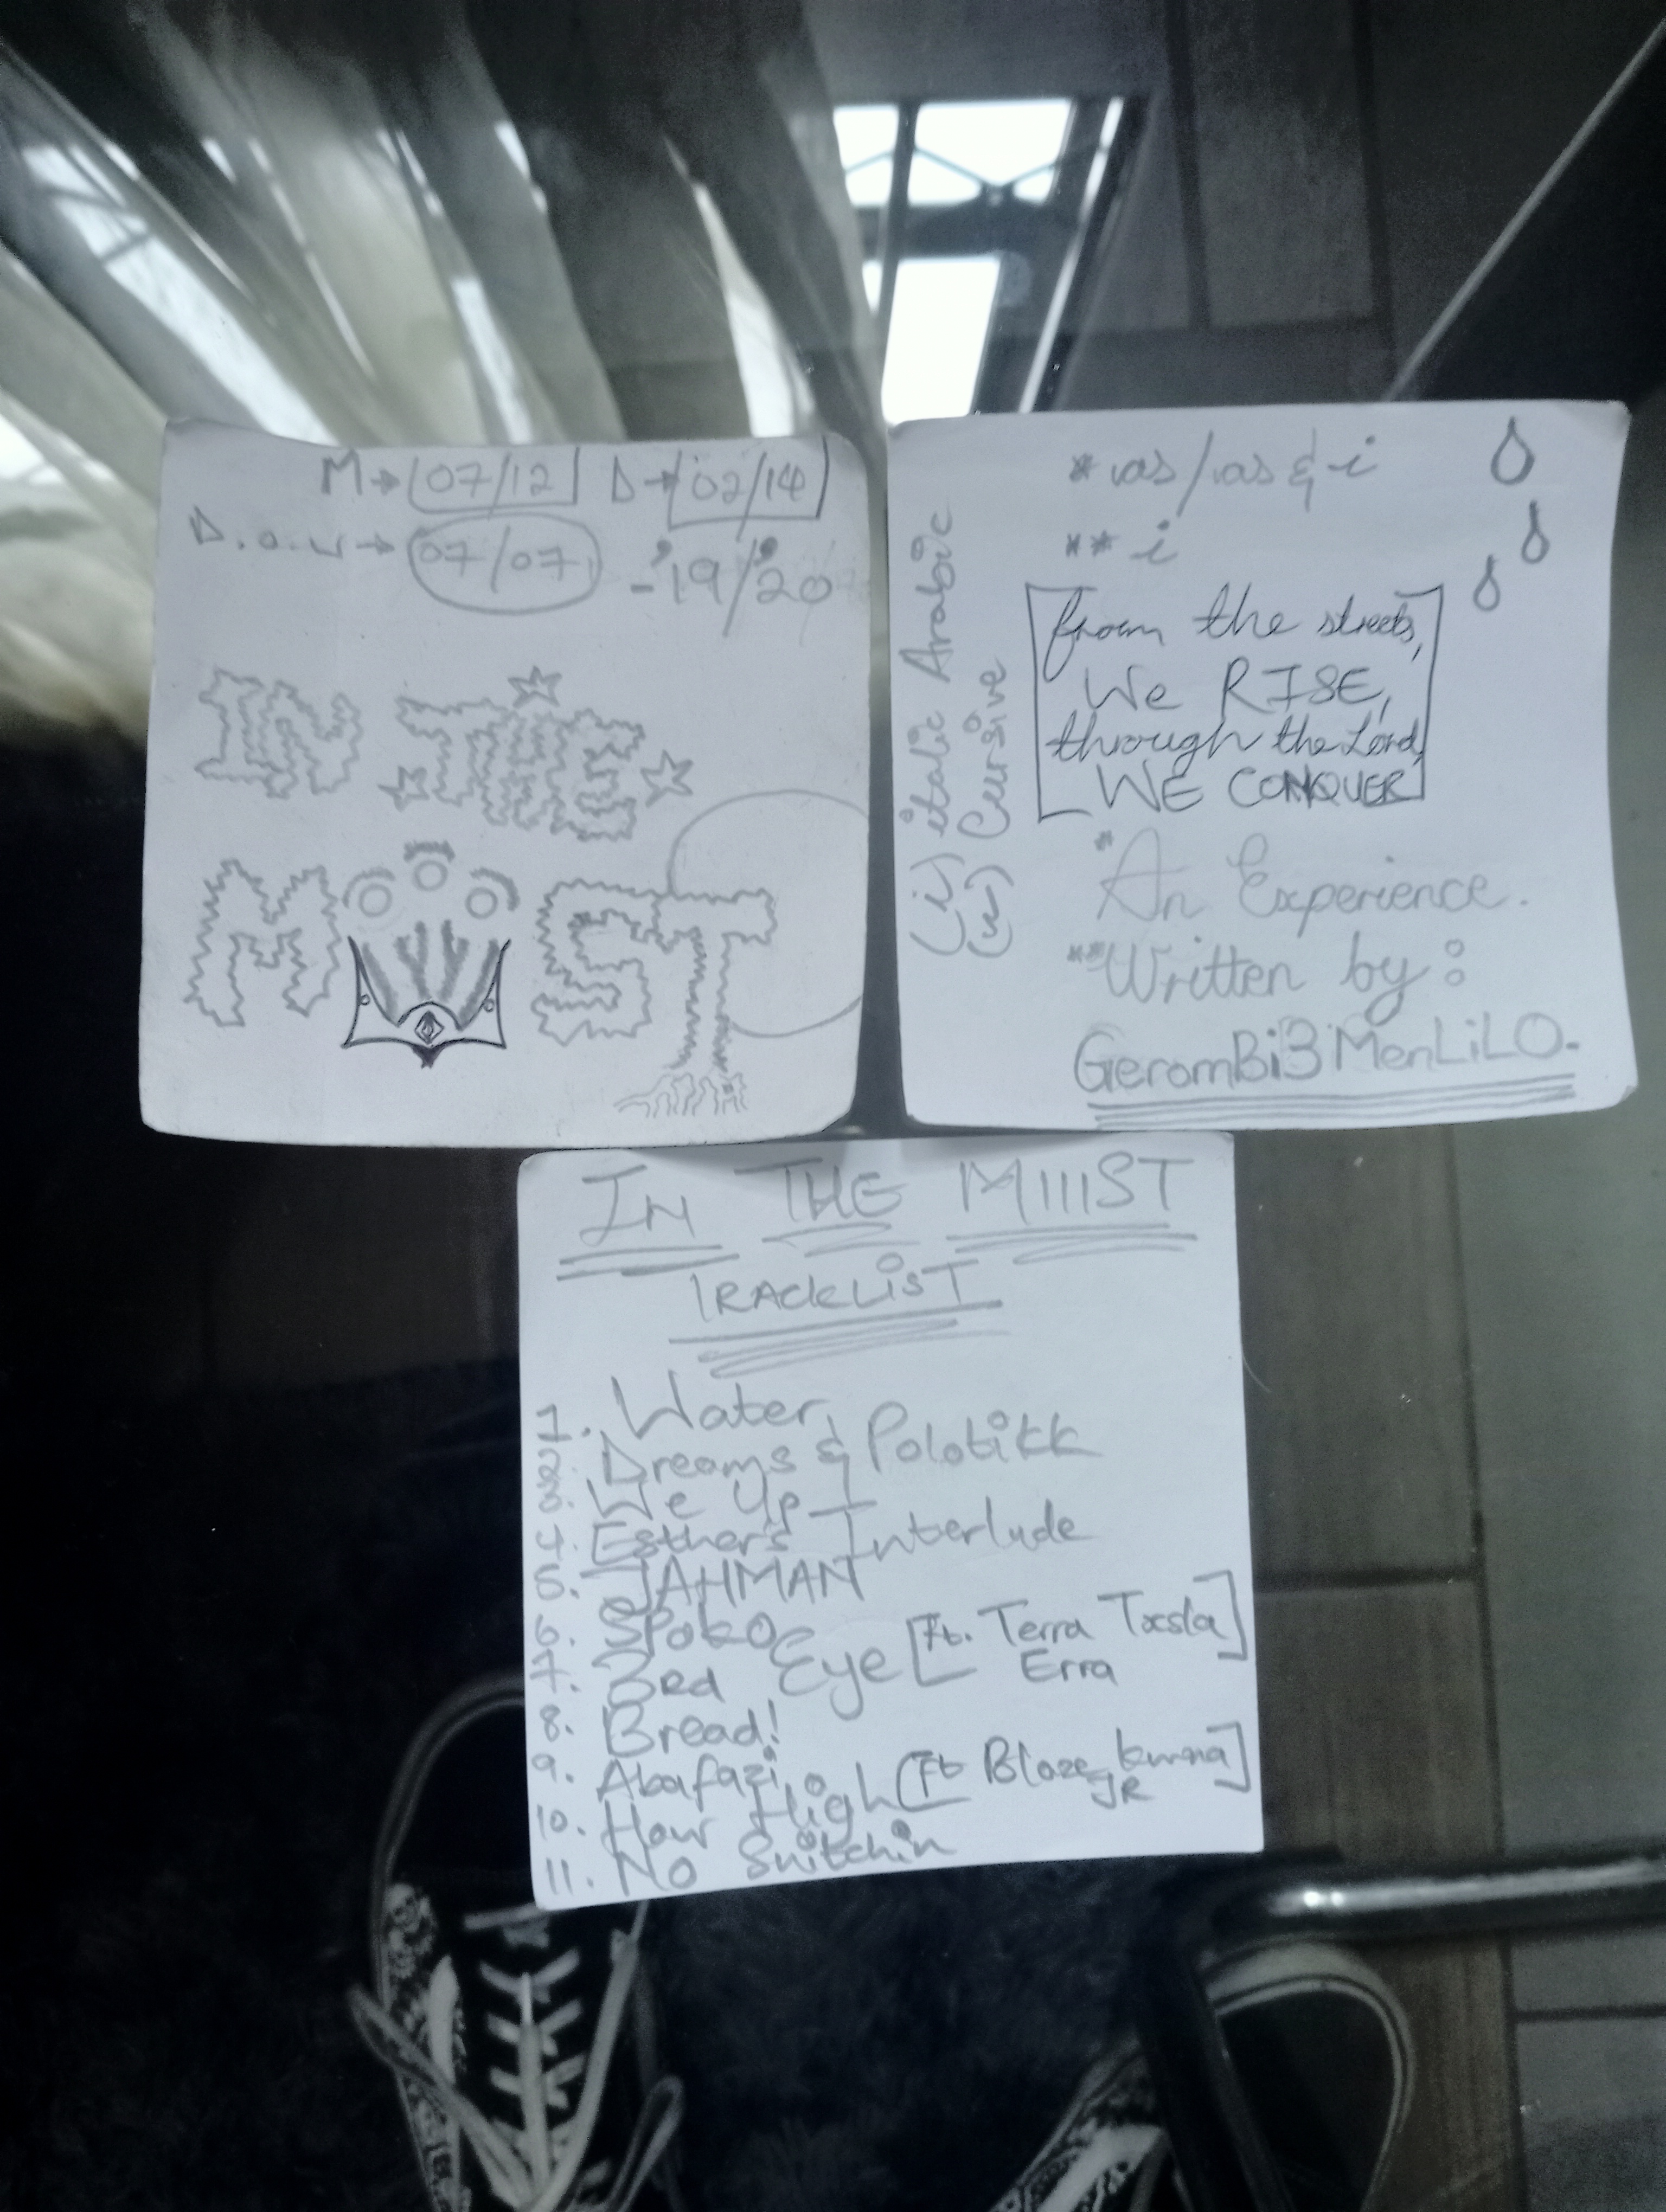 M→ 07/12 D→ 02/14
D.O.W→ 07/07 -'19/'20
IN THE
M ST
* vas/vas & i
** i
(i) italic Arabic
(ii) Cursive
from the streets,
We RISE,
through the Lord,
WE CONQUER
*An Experience.
**Written by:
GeromBi3MenLiLO.
IN THE MIIIST
TRACKLIST
1. Water
2. Dreams & Polotikk
3. We Up
4. Esther's Interlude
5. JAHMAN
6. Spoko
7. 3rd Eye [Ft. Terra Txsla]
Erra
8. Bread!
9. Abafazi
10. How High [Ft Blaze]
JR
11. No Snitchin